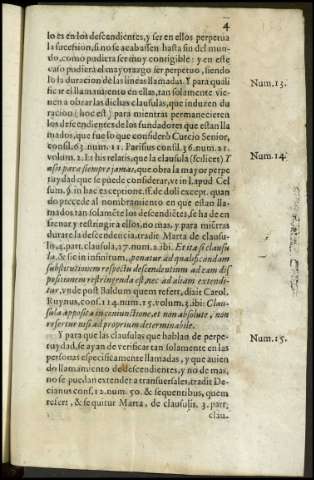 4
lo es en los descendientes, y ser en ellos perpetua
la succession, si no se acabassen hasta fin del mun-
do, como pudiera ser muy contigible: y en este
caso pudiera el mayorazgo ser perpetuo, siendo
lo la duracion de las lineas llamadas. Y para quali
ficar el llamamiento en ellas, tan solamente vie-
nen a obrar las dichas clausulas, que induzen du
racion (hoc est) para mientras permanecieren
los descendientes de los fundadores que estan lla
mados, que fue lo que considerò Curcio Senior,
consil. 63. num. 11. Parisius consil. 36. num. 21.
volum. 2. Et his relatis, que la clausula (scilicet) Y
assi para siempre jamas, que obra la mayor perpe
tuydad que se puede considerar, vt in l. apud Cel
sum, §. in hac exceptione. ff. de doli except. quan
do precede al nombramiento en que estan lla
mados, tan solamẽte los descendiẽtes, se ha de en
frenar, y restringir a ellos, no mas, y para miẽtras
durare la descendẽcia. tradit Marta de clausu-
lis, 4. part. clausula, 27. num. 2. ibi: Et ita si clausu
la, & sic in infinitum, ponatur ad qualificandam
substitutionem respectu descendentium ad eam dis
positionem restringenda est, nec ad aliam extendi-
tur, vnde post Baldum quem refert, dixit Carol.
Ruynus, cons. 114. num. 15. volum. 3. ibi: Clau-
sula apposita in coniunctione, et non absolute, non
refertur nisi ad proprium determinabile.
Y para que las clausulas que hablan de perpe-
tuydad, se ayan de verificar tan solamente en las
personas especificamente llamadas, y que auien
do llamamiento de descendientes, y no de mas,
no se puedan extender a transuersales, tradit De-
cianus cons. 12. num. 50. & sequentibus, quem
refert, & sequitur Marta, de clausulis, 3. part.
clau-
Num. 13.
Num. 14
Num. 15.